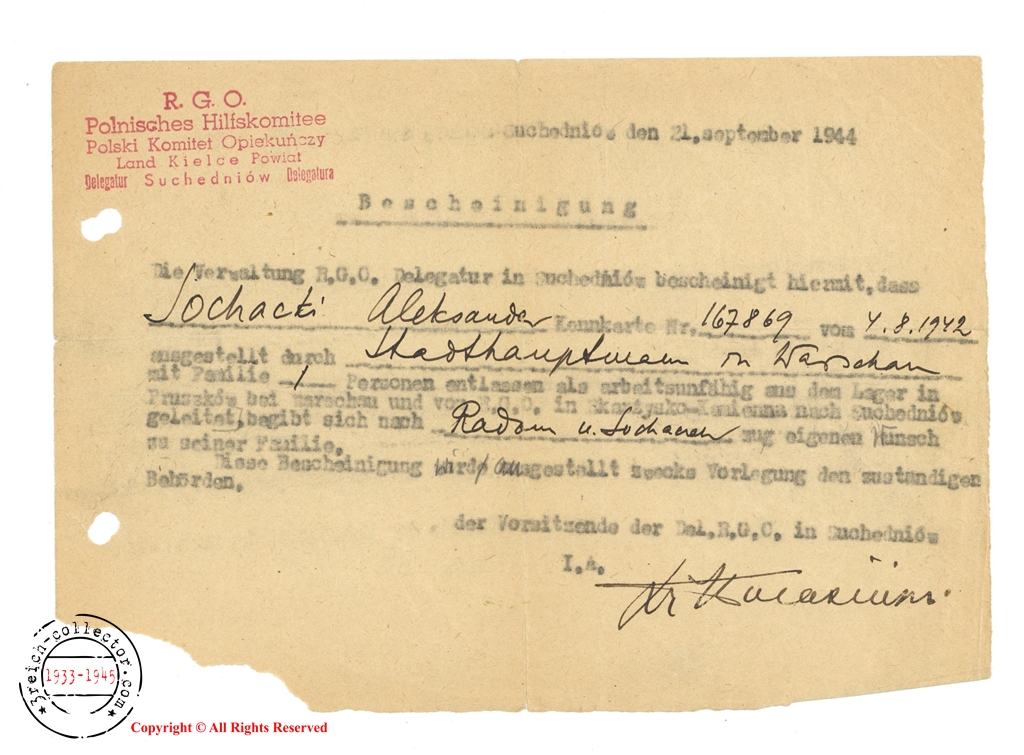 R. G. O.
Polnisches Hilfskomitee
Polski Komitet Opiekuńczy
Land Kielce Powiat
Delegatur Suchedniów Delegatura
Suchedniów den 21.september 1944
Bescheinigung
Die Verwaltung R.G.O. Delegatur in Suchedniów bescheinigt hiermit, dass
Sochacki Aleksander Kennkarte Nr. 167869 vom 4.8.1942
ausgestellt durch Stadthauptmann in Warschau
mit Familie 1 Personen entlassen als arbeitsunfähig aus dem Lager in
Pruszków bei Warschau und von R.G.O. in Skarżysko-Kamienna nach Suchedniów
geleitet, begibt sich nach Radom u. zug eigenen Wunsch
zu seiner Familie.
Diese Bescheinigung wird ausgestellt zwecks Vorlegung den zuständigen
Behörden.
der Vorsitzende der Del.R.G.O. in Suchedniów
I.A.
3reich-collector.com
1933-1945
Copyright © All Rights Reserved